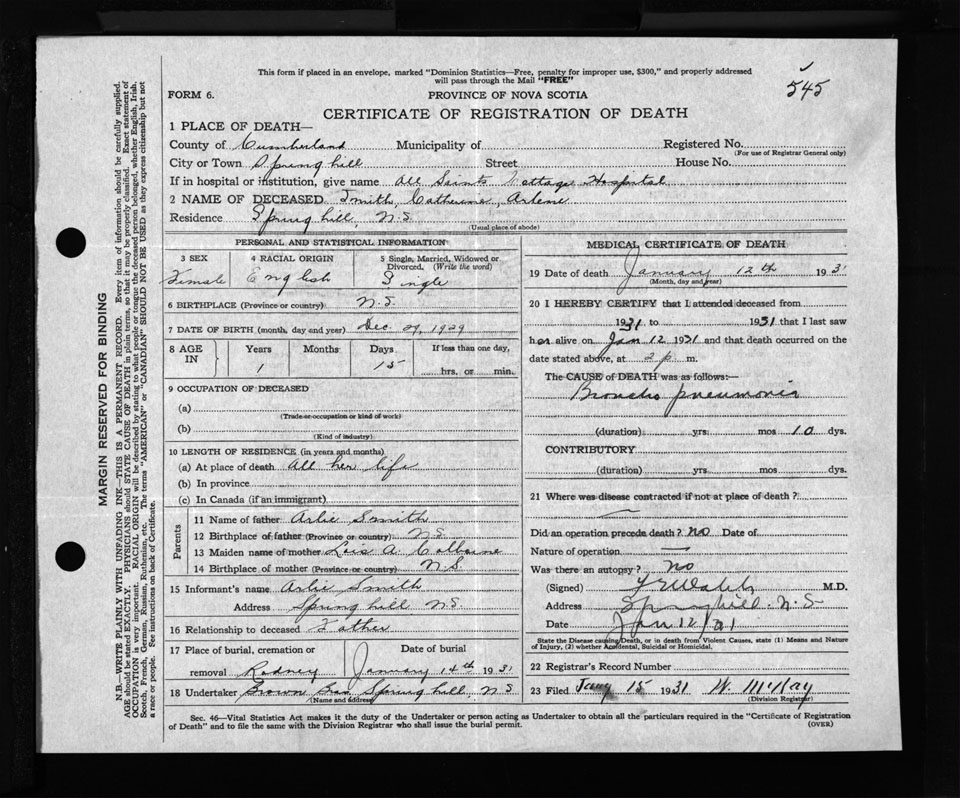 545
This form if placed in an envelope, marked "Dominion Statistics—Free, penalty for improper use, $300," and properly addressed
will pass through the Mail "FREE"
FORM 6.
PROVINCE OF NOVA SCOTIA
CERTIFICATE OF REGISTRATION OF DEATH
1 PLACE OF DEATH—
County of Cumberland Municipality of Registered No.
(For use of Registrar General only)
City or Town Springhill Street House No.
If in hospital or institution, give name All Saints Cottage Hospital
2 NAME OF DECEASED Smith, Catherine, Arlene
Residence Springhill, N.S.
(Usual place of abode)
PERSONAL AND STATISTICAL INFORMATION
3 SEX
Female
4 RACIAL ORIGIN
English
5 Single, Married, Widowed or
Divorced. (Write the word)
Single
6 BIRTHPLACE (Province or country) N.S.
7 DATE OF BIRTH (month, day and year) Dec 27, 1929
8 AGE
IN
Years
1
Months
Days
15
If less than one day,
hrs. or min.
9 OCCUPATION OF DECEASED
(a)
(Trade or occupation or kind of work)
(b)
(Kind of industry)
10 LENGTH OF RESIDENCE (in years and months)
(a) At place of death All her life
(b) In province
(c) In Canada (if an immigrant)
Parents
11 Name of father Arlie Smith
12 Birthplace of father (Province or country) N.S.
13 Maiden name of mother Lois A.
14 Birthplace of mother (Province or country) N.S
15 Informant's name Arlie Smith
Address Springhill N.S.
16 Relationship to deceased Father
17 Place of burial, cremation or
removal Rodney
Date of burial
January 14th 1931
18 Undertaker Brown Springhill, N.S
(Name and address)
MEDICAL CERTIFICATE OF DEATH
19 Date of death January 12th 1931
(Month, day and year)
20 I HEREBY CERTIFY that I attended deceased from
1931 to 1931 that I last saw
her alive on Jan 12 1931 and that death occurred on the
date stated above, at 2 p m.
The CAUSE of DEATH was as follows:—
Broncho pneumonia
(duration) yrs. mos 10 dys.
CONTRIBUTORY
(duration) yrs. mos dys.
21 Where was disease contracted if not at place of death?
Did an operation precede death? no Date of
Nature of operation —
Was there an autopsy? no
(Signed) M.D.
Address Springhill. N.S
Date Jan 12/31
State the Disease causing Death, or in death from Violent Causes, state (1) Means and Nature
of Injury, (2) whether Accidental, Suicidal or Homicidal.
22 Registrar's Record Number
23 Filed Jany 15 1931 W. McKay
(Division Registrar)
Sec. 46—Vital Statistics Act makes it the duty of the Undertaker or person acting as Undertaker to obtain all the particulars required in the "Certificate of Registration
of Death" and to file the same with the Division Registrar who shall issue the burial permit.
(OVER)
MARGIN RESERVED FOR BINDING
N.B.—WRITE PLAINLY WITH UNFADING INK—THIS IS A PERMANENT RECORD. Every item of information should be carefully supplied.
AGE should be stated EXACTLY. PHYSICIANS should STATE CAUSE OF DEATH in plain terms, so that it may be properly classified. Exact statement of
OCCUPATION is very important. RACIAL ORIGIN will be described by stating to what people or tongue the deceased person belonged, whether English, Irish,
Scotch, French, German, Russian, Ruthenian, etc. The terms "AMERICAN" or "CANADIAN" SHOULD NOT BE USED as they express citizenship but not
a race or people. See instructions on back of Certificate.